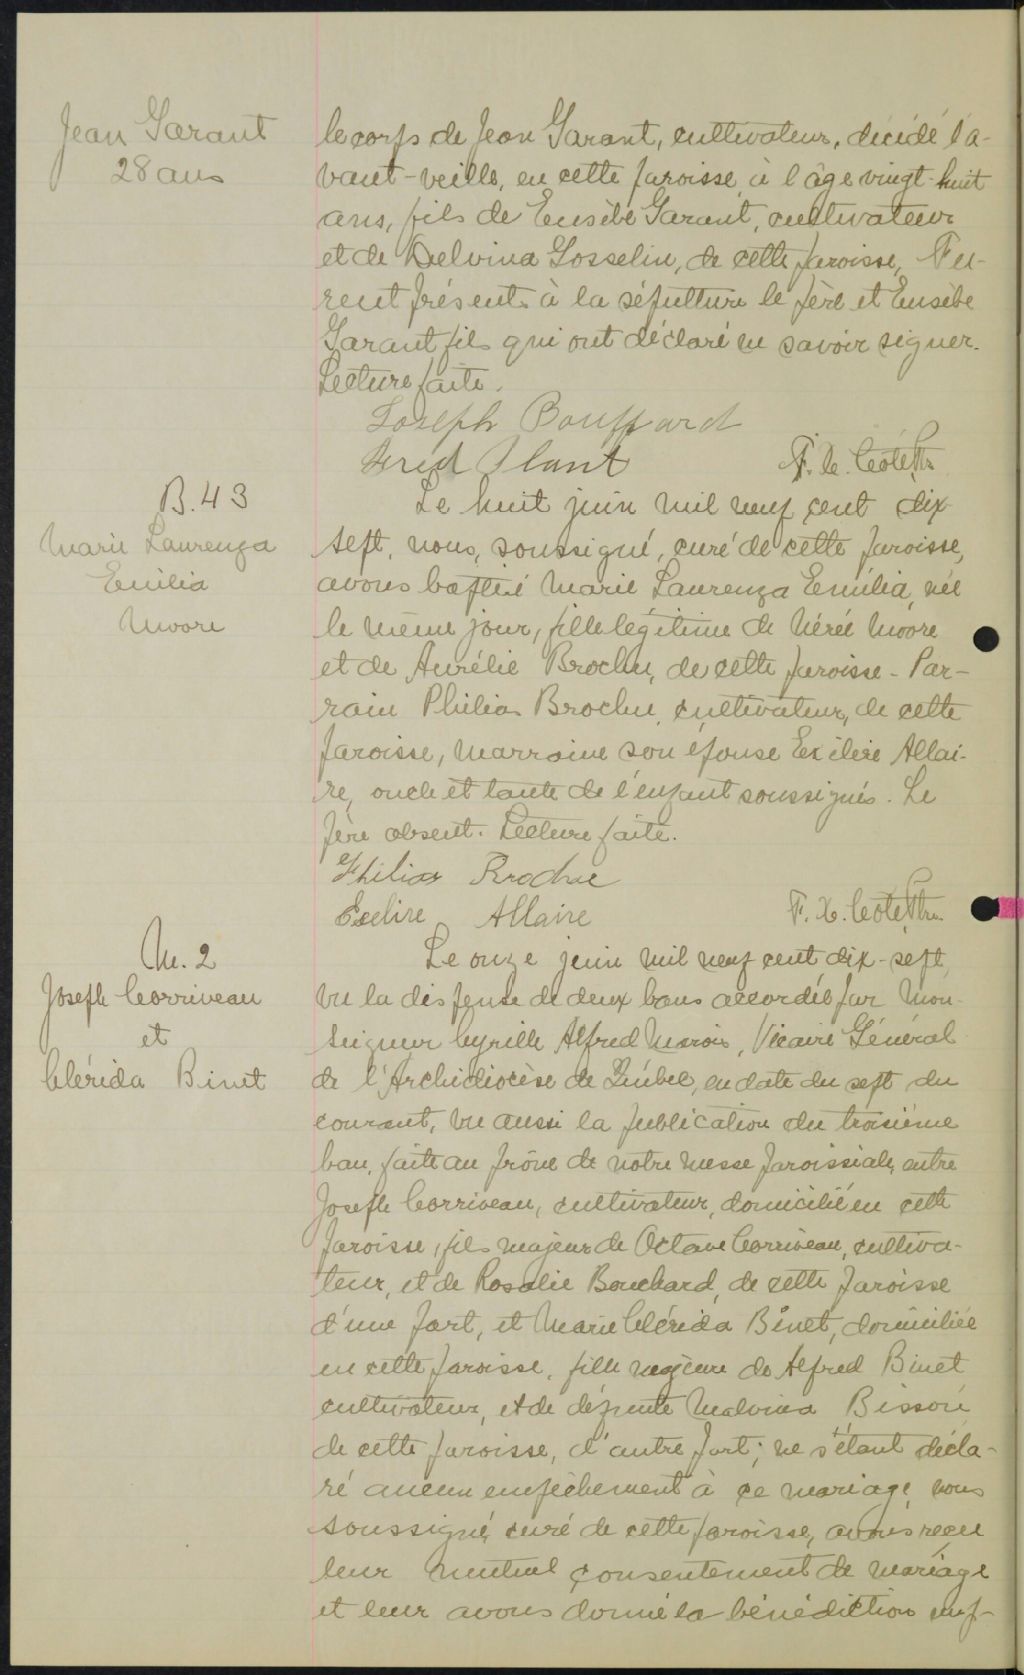 Jean Garant
28 ans
le corps de Jean Garant, cultivateur, décédé l'a-
vant-veille, en cette paroisse, à l'âge vingt-huit
ans, fils de Eusèbe Garant, cultivateur
et de Delvina Gosselin, de cette paroisse, Fu-
rent présents à la sépulture le père et Eusèbe
Garant fils qui ont déclaré ne savoir signer.
Lecture faite.
Joseph Bouffard
Fred Plant F. X. Côté, Ptre
B. 43
Marie Laurenza
Emilia
Moore
Le huit juin mil neuf cent dix
sept, nous, soussigné, curé de cette paroisse,
avons baptisé Marie Laurenza Emilia, née
le même jour, fille légitime de Nérée Moore
et de Aurélie Brochu, de cette paroisse - Par-
rain Philias Brochu, cultivateur, de cette
paroisse, marraine son épouse Exilire Allai-
re, oncle et tante de l'enfant soussignés. Le
père absent. Lecture faite.
Philias Brochu
Exelire Allaire F. X. Côté, Ptre.
M. 2
Joseph Corriveau
et
Clérida Binet
Le onze juin mil neuf cent dix-sept,
vu la dispense de deux bans accordée par Mon-
seigneur Cyrille Alfred Marois, Vicaire Général
de l'Archidiocèse de Québec, en date du sept du
courant, vu aussi la publication du troisième
ban, faite au prône de notre messe paroissiale, entre
Joseph Corriveau, cultivateur, domicilié en cette
paroisse, fils majeur de Octave Corriveau, cultiva-
teur, et de Rosalie Bouchard, de cette paroisse
d'une part, et Marie Clérida Binet, domiciliée
en cette paroisse, fille majeure de Alfred Binet
cultivateur, et de défunte Malvina Bisson
de cette paroisse, d'autre part; ne s'étant décla-
ré aucun empêchement à ce mariage, nous
soussigné, curé de cette paroisse, avons reçu
leur mutuel consentement de mariage
et leur avons donné la bénédiction nup-